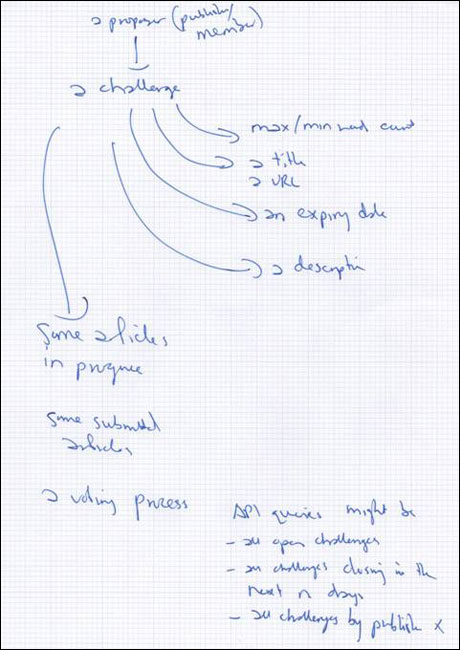 a proposer (publisher/
member)
a challenge
max/min word count
a title
a URL
an expiry date
a description
Some articles
in progress
Some submitted
articles
a voting process
API queries might be
- all open challenges
- all challenges closing in the
next n days
- all challenges by publisher x